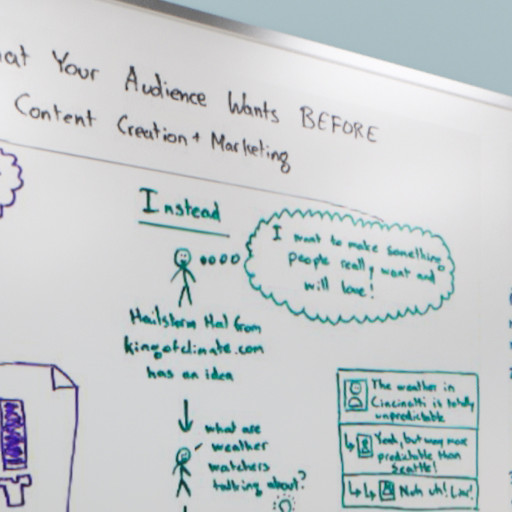 at Your Audience Wants BEFORE
Content Creation + Marketing
Instead
I want to make something
people really want and
will love!
Hailstorm Hal from
kingofclimate.com
has an idea
what are
weather
watchers
talking about?
The weather in
Cincinatti is totally
unpredictable
Yeah, but way more
predictable than
Seattle!
Nuh uh! Liar!